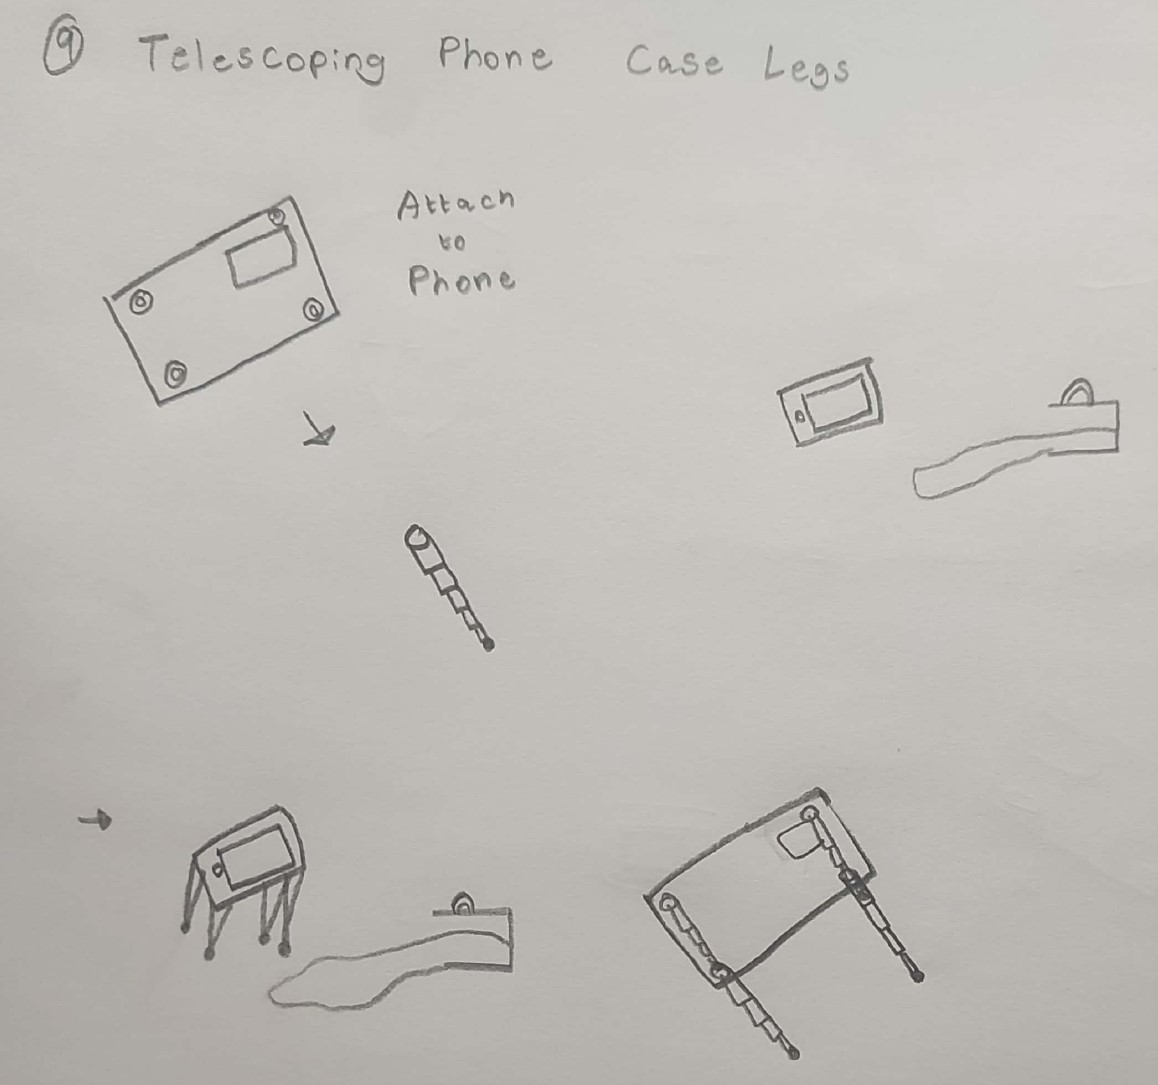 9 Telescoping Phone Case Legs
Attach
to
Phone